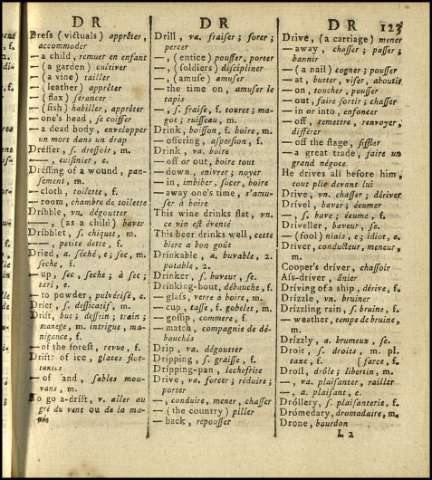 D R
Dress (victuals) apprêter,
accommoder
— a child, remuer en enfant
— (a garden) cultiver
— (a vine) tailler
— (leather) apprêter
— (flax) serancer
— (fish) habiller, apprêter
— one's head, se coiffer
— a dead body, envelopper
un mort dans un drap
Dresser, s. dressoir, m.
—, cuisinier, c.
Dressing of a wound, pan-
sement, m.
— cloth, toilette, f.
— room, chambre de toilette
Dribble, vn. dégoutter
—, (as a child) baver
Dribblet, s. chiquet, m.
—, petite dette, f.
Dried, a. séché, e; sec, m.
seche, f.
— up, sec, seche; à sec;
tari, e.
— to powder, pulvérisé, e.
Drier, s. dessicatif, m.
Drift, but; dessein; train;
manege, m. intrigue, ma-
nigance, f.
— of the forest, revue, f.
Drift of ice, glaces flot-
tantes
— of sand, sables mou-
vans, m.
To go a-drift, v. aller au
gré du vent ou de la ma-
rée
D R
Drill, va. fraiser; forer;
percer
—, (entice) pousser, porter
—, (soldiers) discipliner
—, (amuse) amuser
— the time on, amuser le
tapis
—, s. fraise, f. touret; ma-
got; ruisseau, m.
Drink, boisson, f. boire, m.
— offering, aspersion, f.
Drink, va. boire
— off or out, boire tout
— down, enivrer; noyer
— in, imbiber, sucer, boire
— away one's time, s'amu-
ser à boire
This wine drinks flat, vn.
ce vin est évenié
This beer drinks well, cette
biere a bon goût
Drinkable, a. buvable, 2.
potable, 2.
Drinker, s. buveur, se.
Drinking-bout, débauche, f.
— glass, verre à boire, m.
— cup, tasse, f. gobelet, m.
— gossip, commere, f.
— match, compagnie de dé-
bauchés
Drip, va. dégoutter
Dripping, s. graisse, f.
Dripping-pan, lechefrite
Drive, va. forcer; réduire;
porter
—, conduire, mener, chasser
— (the country) piller
— back, repousser
D R 123
Drive, (a carriage) mener
— away, chasser; passer;
bannir
— (a nail) cogner; pousser
— at, butter, viser, aboutir
— on, toucher, pousser
— out, faire sortir; chasser
— in or into, enfoncer
— off, remettre, renvoyer,
différer
— off the stage, siffler
— a great trade, faire un
grand négoce
He drives all before him,
tout plie devant lui
Drive, vn. chasser; dériver
Drivel, baver; écumer
—, s. bave; écume, f.
Driveller, baveur, se.
— (fool) niais, e; idiot, e.
Driver, conducteur, meneur,
m.
Cooper's driver, chassoir
Ass-driver, ânier
Driving of a ship, dérive, f.
Drizzle, vn. bruiner
Drizzling rain, s. bruine, f.
— weather, temps de bruine,
m.
Drizzly, a. brumeux, se.
Droit, s. droits, m. pl.
taxe, f. [farce, f.
Droll, drôle; libertin, m.
—, va. plaisanter, railler
—, a. plaisant, e.
Drollery, s. plaisanterie, f.
Dromedary, dromadaire, m.
Drone, bourdon
L 2